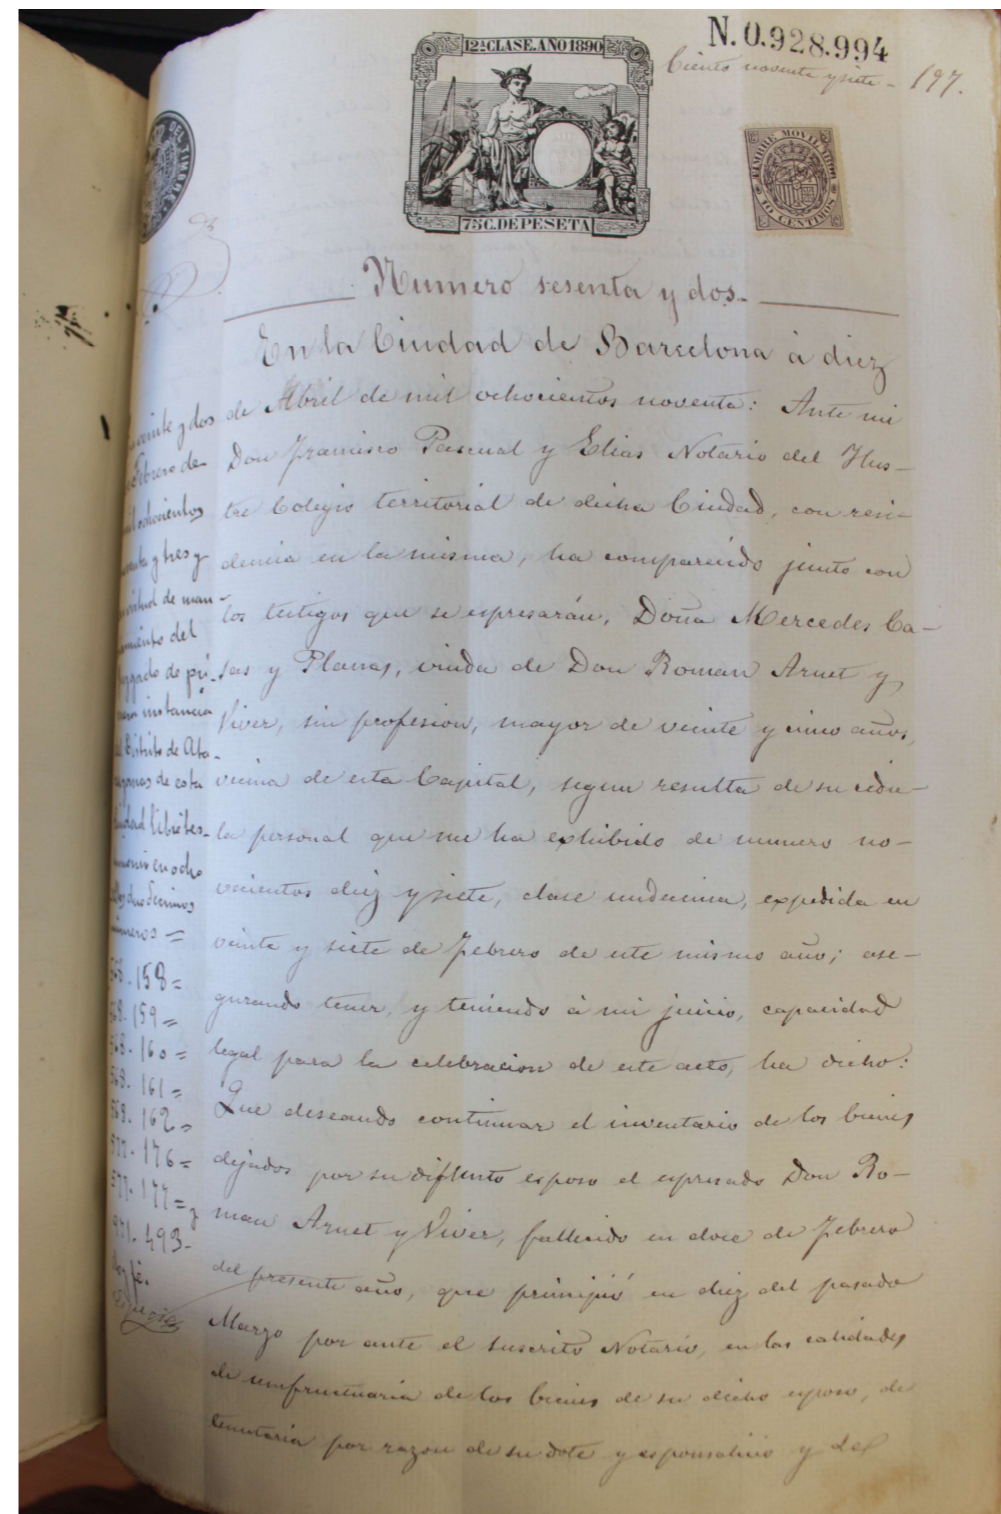 N. 0.928.994
12ª CLASE. AÑO 1890
Ciento noventa y siete - 197.
TIMBRE MOVIL 1890
10 CENTIMOS
75 C. DE PESETA
DEL TIMBRE
Numero sesenta y dos-
En la Ciudad de Barcelona á diez
de Abril de mil ochocientos noventa: Ante mi
Don Francisco Pascual y Elias Notario del Ilus-
tre Colegio territorial de dicha Ciudad, con resi-
dencia en la misma, ha comparecido junto con
los testigos que se espresarán, Doña Mercedes Ca-
sas y Planas, viuda de Don Roman Arnet y
Viver, sin profesion, mayor de veinte y cinco años,
vecina de esta Capital, segun resulta de su cedu-
la personal que me ha exhibido de numero no-
vecientos diez y siete, clase undecima, expedida en
veinte y siete de Febrero de este mismo año; ase-
gurando tener, y teniendo á mi juicio, capacidad
legal para la celebracion de este acto, ha dicho:
Que deseando continuar el inventario de los bienes
dejados por su difunto esposo el espresado Don Ro-
man Arnet y Viver, fallecido en doce de Febrero
del presente año, que principió en diez del pasado
Marzo por ante el suscrito Notario, en las calidades
de usufructuaria de los bienes de su dicho esposo, de
tenutaria por razon de su dote y esponsalicio y del
veinte y dos
Febrero de
ochocientos
y tres y
virtud de man-
damiento del
Juzgado de pri-
mera instancia
del Distrito de Ata-
razanas de esta
Ciudad libré tes-
timonio en ocho
números =
568.158=
568.159=
568.160=
568.161=
568.162=
577.176=
577.177= y
971.493-
Doy fé.